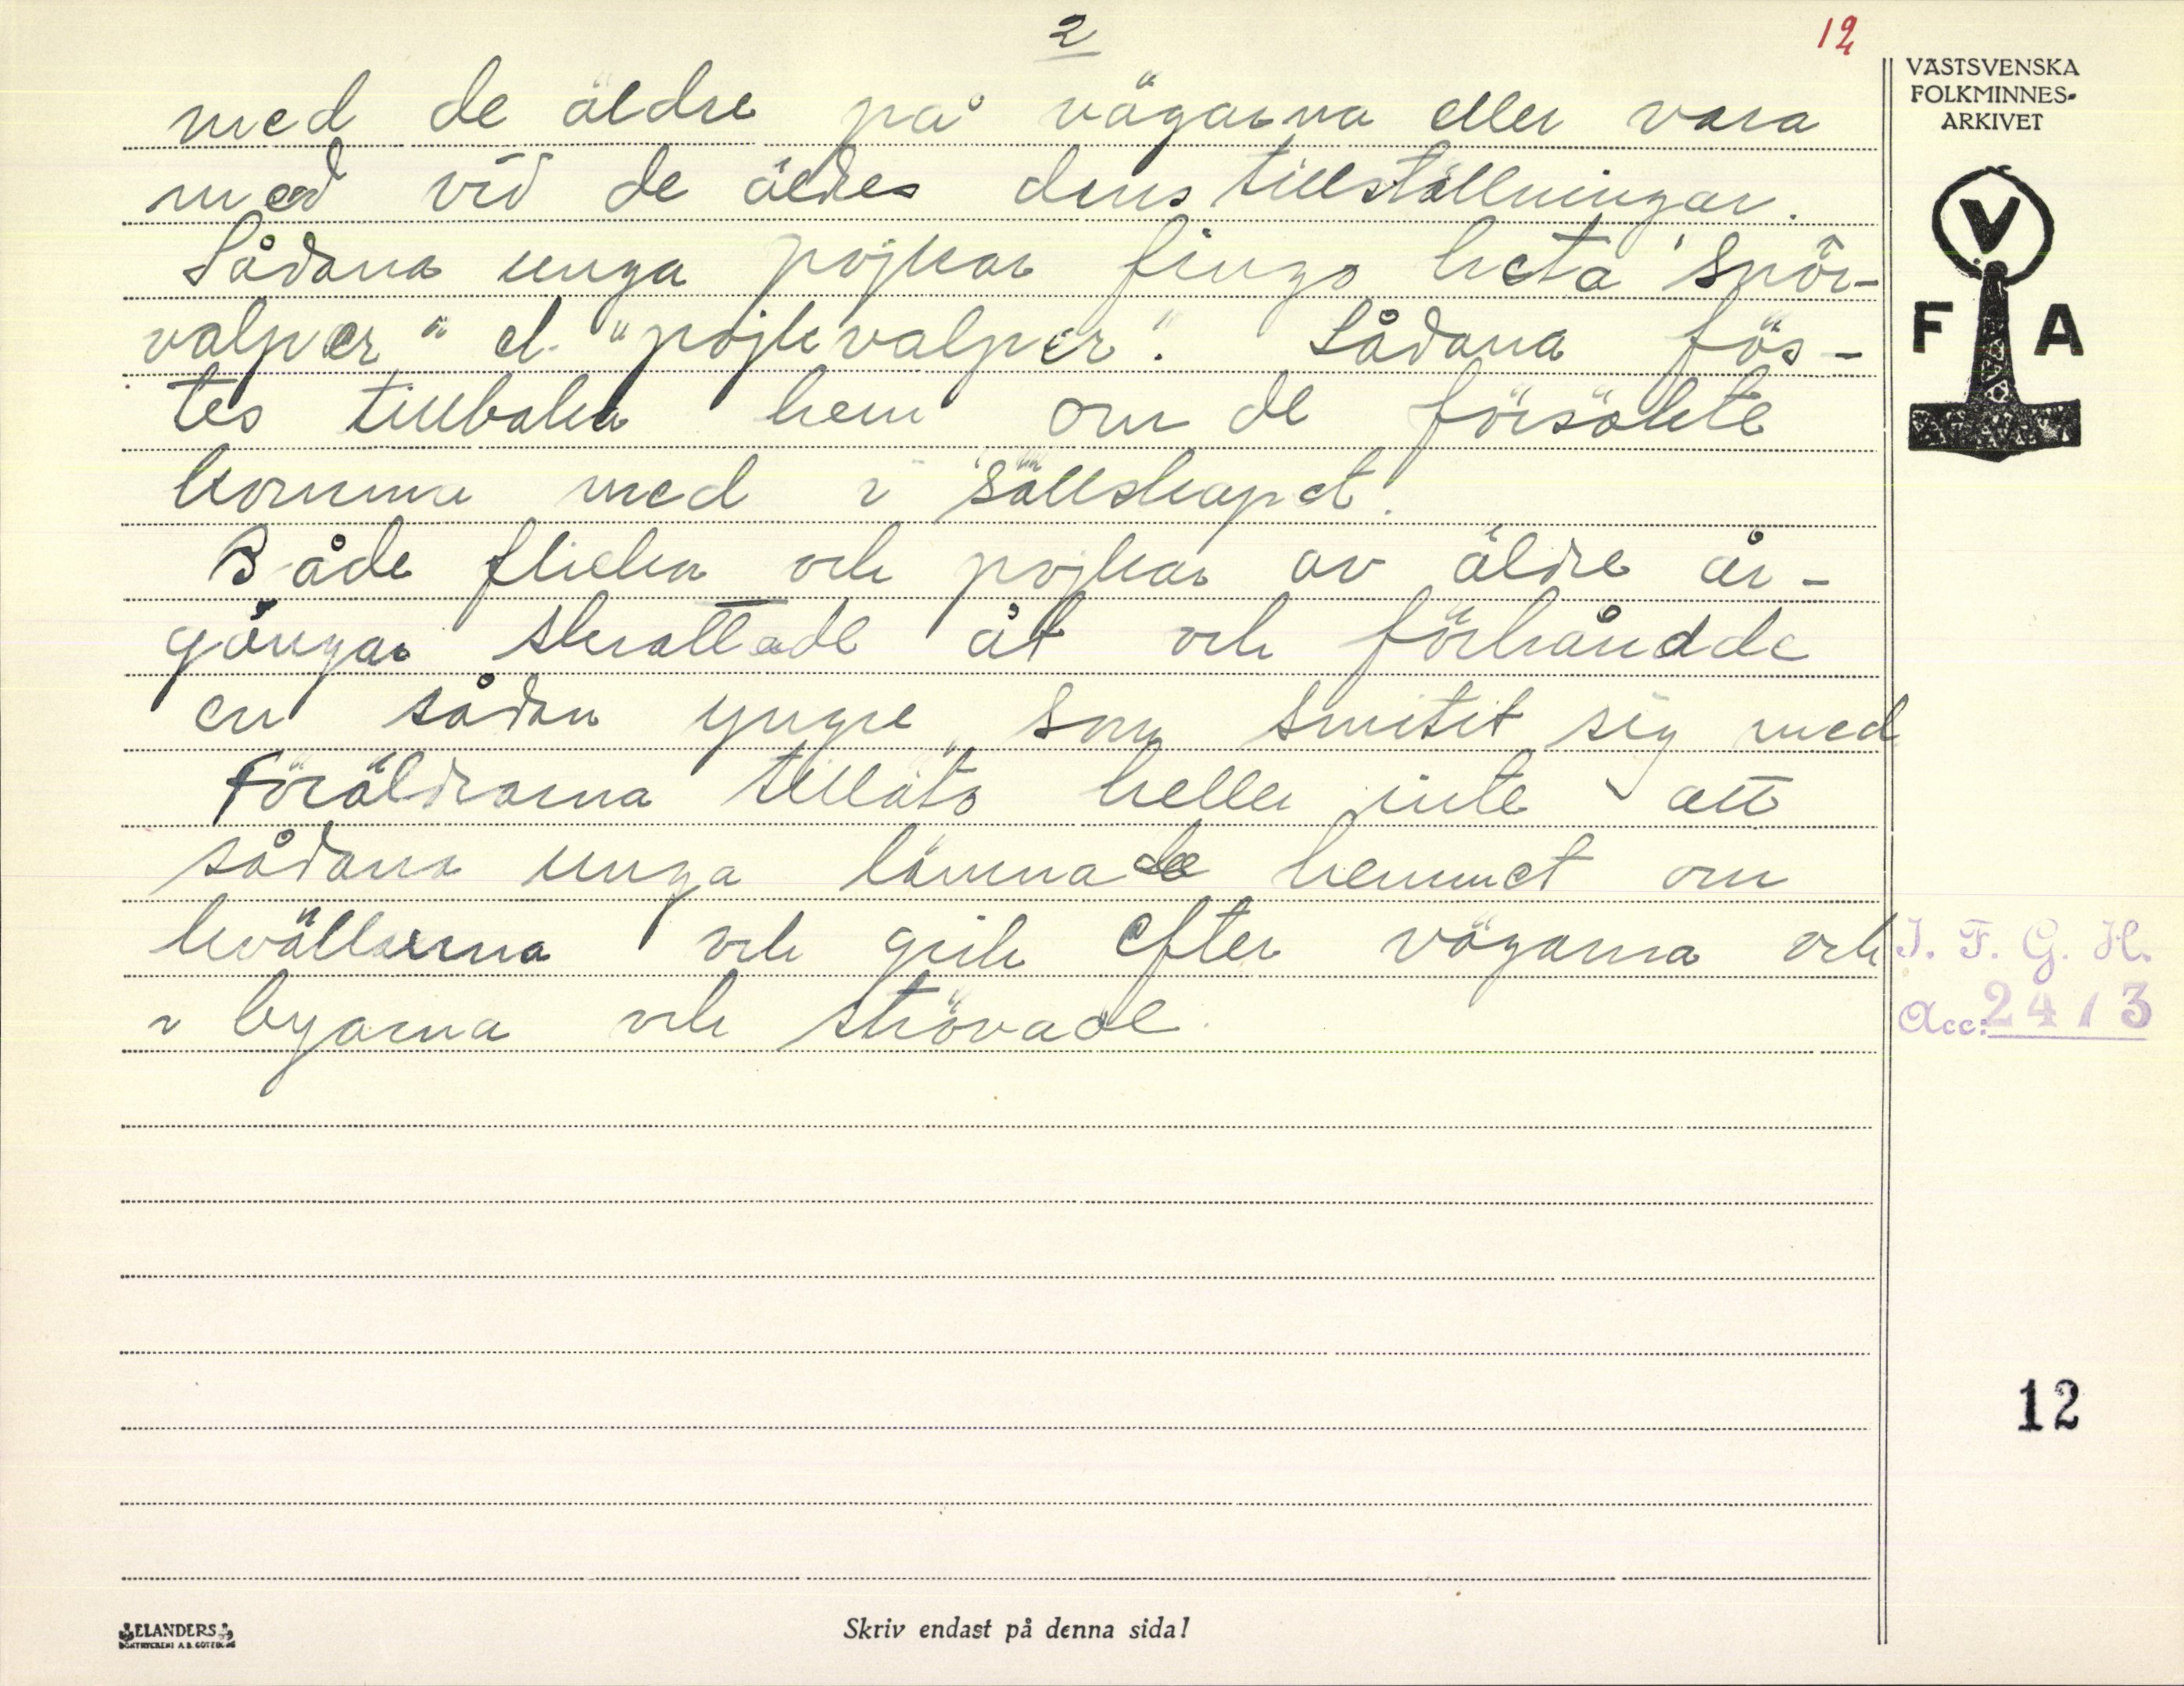 2
12
med de äldre på vägarna eller vara
med vid de äldres danstillställningar.
Sådana unga pojkar fingo heta "snör-
valper" el. "pojkvalper". Sådana fös-
tes tillbaka hem om de försökte
komma med i sällskapet.
Både flickor och pojkar av äldre år-
gångar skrattade åt och förhånade
en sådan yngre, som smitit sig med
Föräldrarna tilläto heller inte att
sådana unga lämnade hemmet om
kvällarna och gick efter vägarna och
i byarna och strövade.
VÄSTSVENSKA
FOLKMINNES-
ARKIVET
V
F A
I. F. G. H.
Acc: 2413
12
ELANDERS
BOKTRYCKERI A.B. GÖTEBORG
Skriv endast på denna sida!